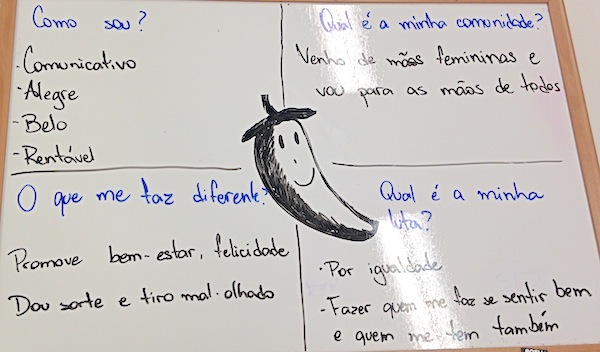 Como sou?
·Comunicativo
·Alegre
-Belo
-Rentável
Qual é a minha comunidade?
Venho de mãos femininas e
vou para as mãos de todos
O que me faz diferente?
Promove bem-estar, felicidade
Dou sorte e tiro mal-olhado
Qual é a minha
luta?
·Por igualdade
-Fazer quem me faz se sentir bem
e quem me tem também